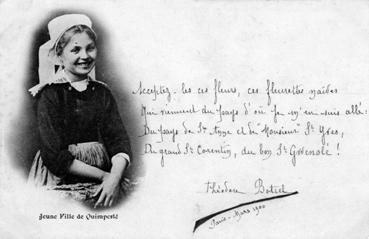 Acceptez-les ces fleurs, ces fleurettes naïves
Qui viennent du pays d'où je m'en suis allé :
Du pays de Ste Anne et de Monsieur St Yves,
Du grand St Corentin, du bon St Gwenolé !
Théodore Botrel
Paris - Mars 1900
Jeune Fille de Quimperlé